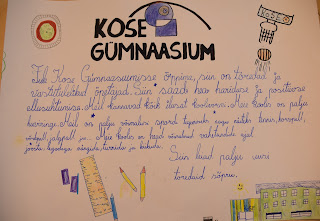 KOSE
GÜMNAASIUM
Tule Kose Gümnaasiumisse õppima, siin on toredad ja
vastutulelikud õpetajad. Siin saad hea hariduse ja positiivse
ellusuhtumise. Meil kasvavad kõik ilusat koolivormi. Meie koolis on palju
huviringe. Meil on palju võimalusi sporti tegemiseks nagu näiteks tennis, korvpall,
võrkpall, jalgpall
Meie koolis on head võimalused vahetundide ajal
ja
Siin leiad palju uusi
toredaid sõpru.
KOSE